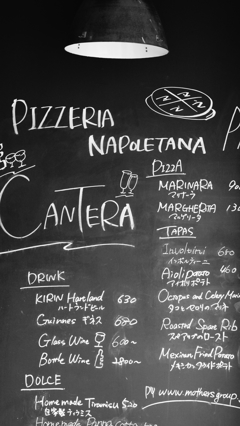 PIZZERIA
NAPOLETANA
CANTERA
PIZZA
MARINARA 90
マリナーラ
MARGHERITA 130
マルゲリータ
TAPAS
Involtini 680
インボルティーニ
Aioli Potato 460
アイオリポテト
Octopus and Celery Marin
タコとセロリのマリネ
Roasted Spare Rib
スペアリブのロースト
Mexican Fried Potato
メキシカンフライドポテト
DRINK
KIRIN Heartland 630
ハートランドビール
Guinness ギネス 680
Glass Wine 600~
Bottle Wine 2800~
DOLCE
Homemade Tiramisu 520
自家製ティラミス
Homemade Panna
www.mothersgroup.